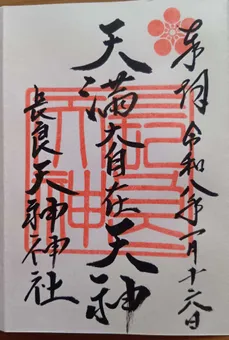 奉拝 令和八年一月十六日
天満大自在天神
長良天神神社
長良天神